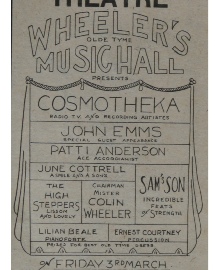 THEATRE
WHEELER'S
OLDE TYME
MUSIC HALL
PRESENTS
COSMOTHEKA
RADIO TV AND RECORDING ARTISTES
JOHN EMMS
SPECIAL GUEST APPEARANCE
PATTI ANDERSON
ACE ACCORDIANIST
JUNE COTTRELL
A SMILE AND A SONG
THE
HIGH
STEPPERS
LISSOM
AND LOVELY
CHAIRMAN
MISTER
COLIN
WHEELER
SAMSON
INCREDIBLE
FEATS
OF STRENGTH
LILIAN BEALE
PIANOFORTE
ERNEST COURTNEY
PERCUSSION
PRIZES FOR BEST OLD TYME
ON FRIDAY 3RD MARCH